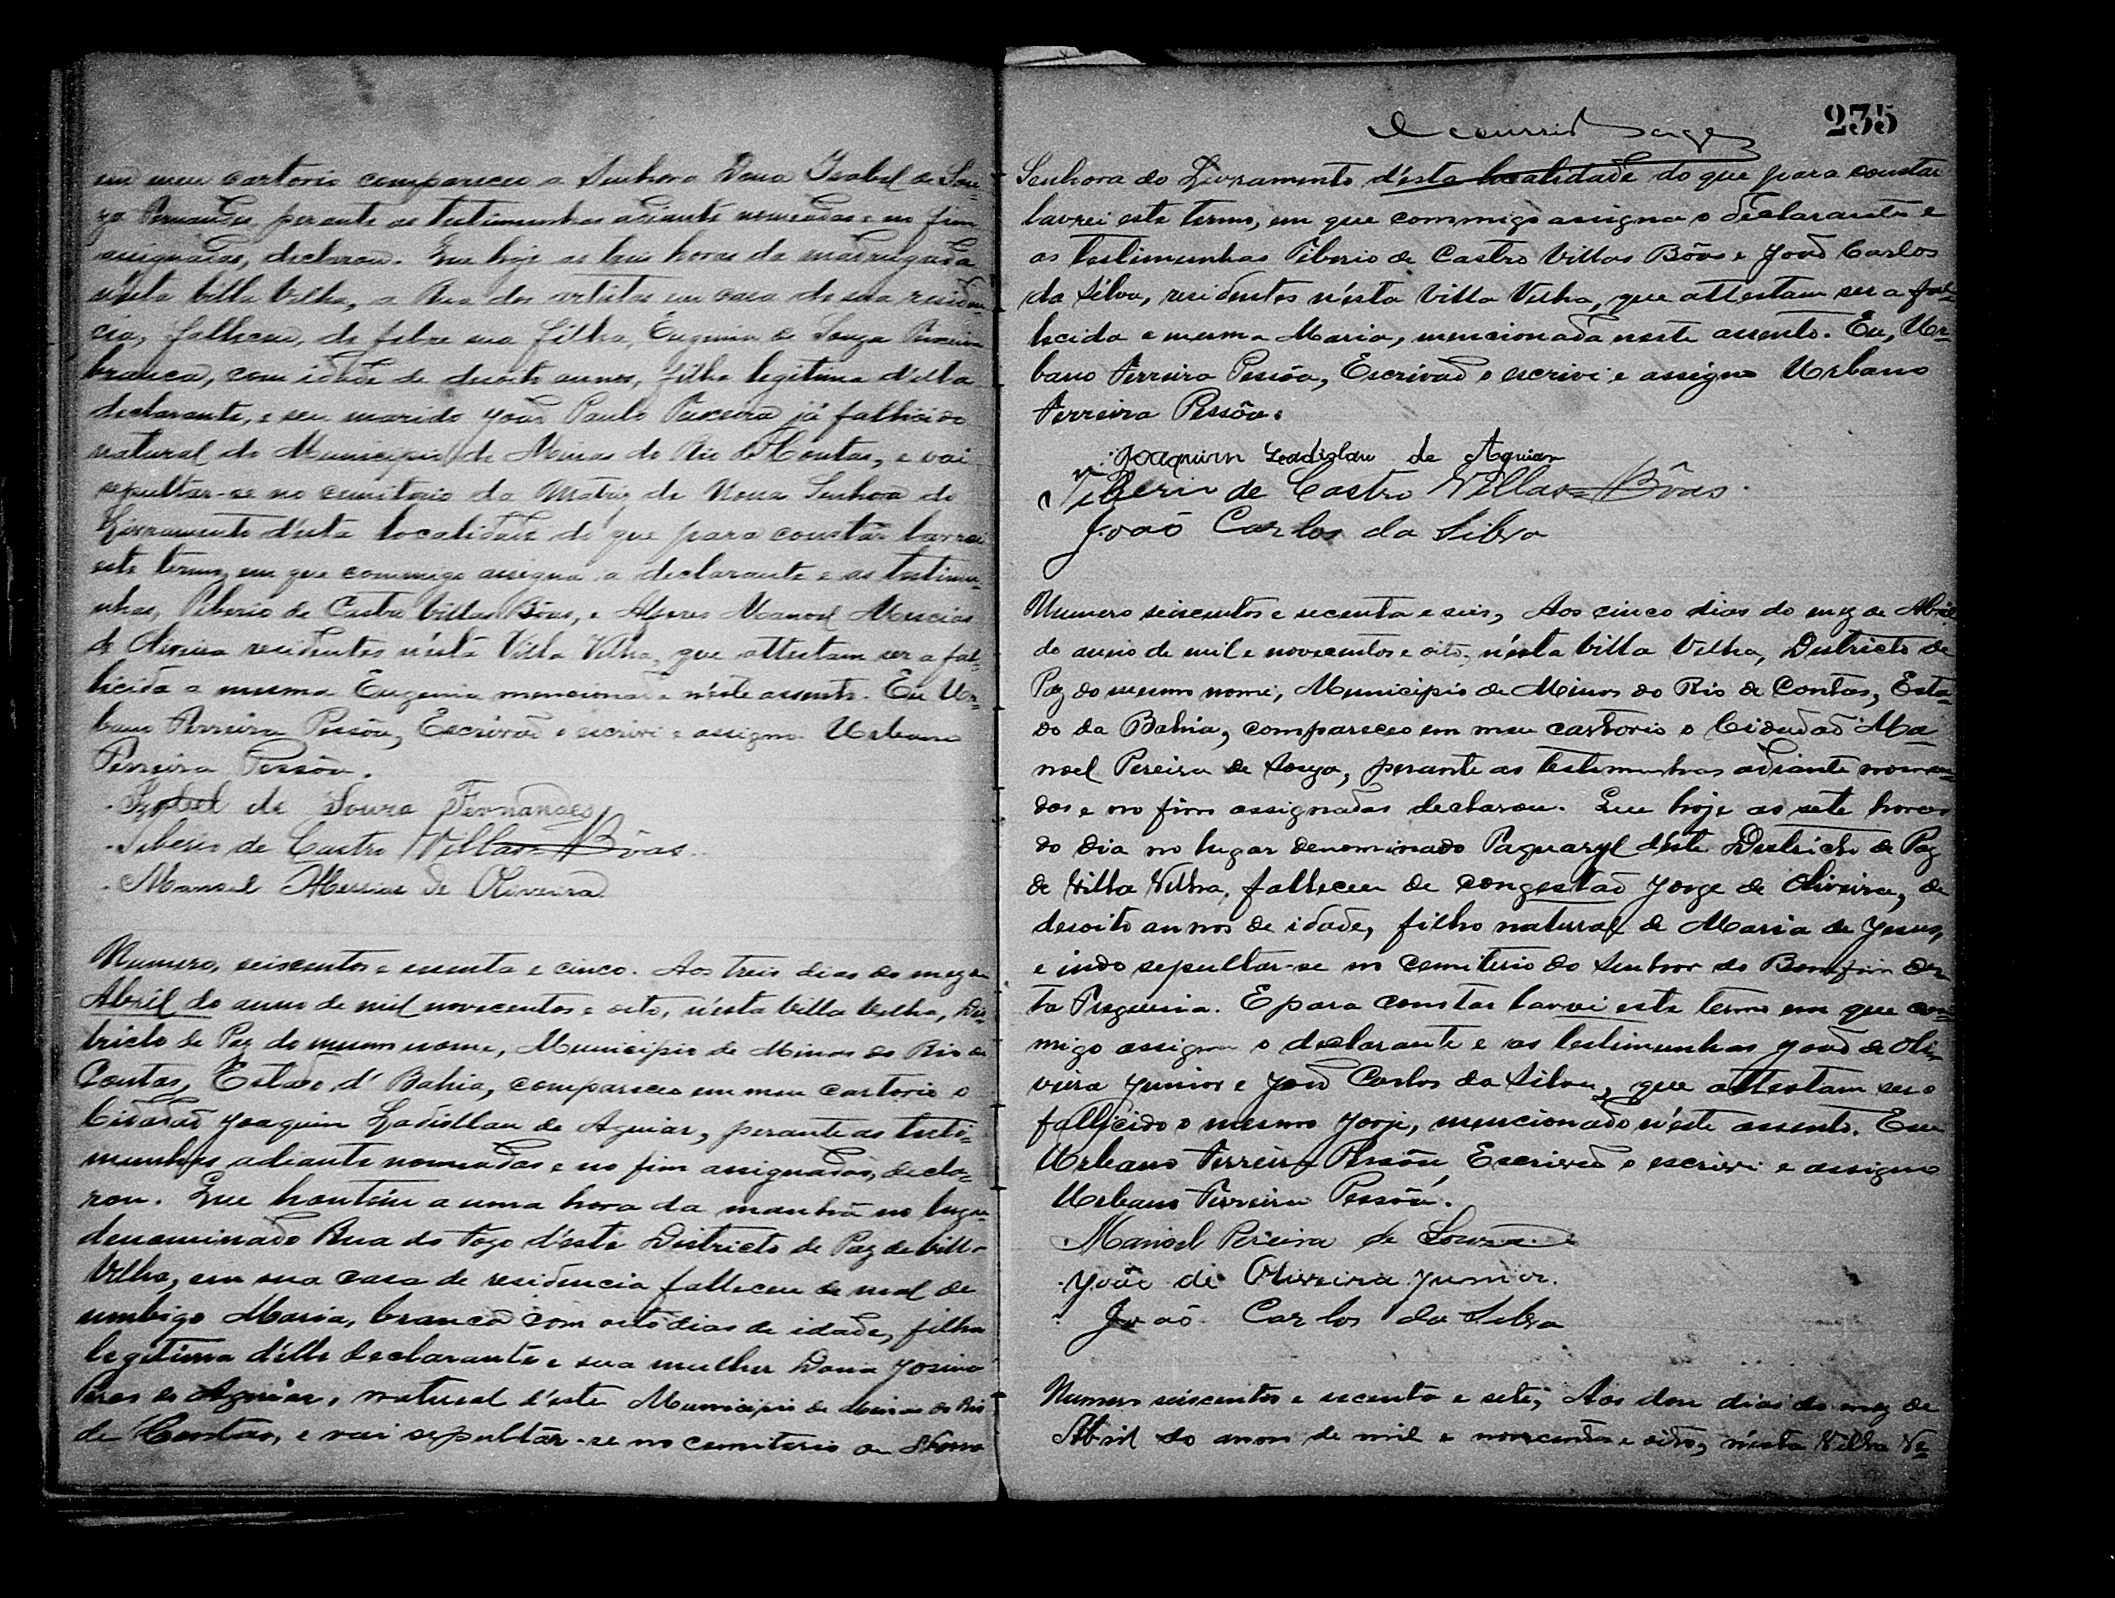 em meu cartorio compareceu a Senhora Dona Izabel de Sou-
za Fernandes perante as testimunhas adiante nomeadas e no fim
assignadas, declarou. Que hoje as tres horas da madrugada
n'esta Villa Velha, a Rua dos artistas em casa de sua residen-
cia, falleceu, de febre sua filha, Eugenia de Souza
branca, com idade de desoito annos, filha legitima d'ella
declarante, e seu marido João Paulo Teixeira já fallicido
natural do Municipio de Minas do Rio de Contas, e vai
sepultar-se no cemiterio da Matriz de Nossa Senhora do
Livramento d'esta localidade do que para constar lavrei
este termo, em que commigo assigna a declarante e as testimu-
nhas, Tiberio de Castro Villas Bôas, e Alferes Manoel Messias
de Oliveira residentes n'esta Villa Velha, que attestam ser a fal-
licida a mesma Eugenia mencionada n'este assento. Eu Ur-
bano Ferreira Pessôa, Escrivaõ o escrivi e assigno. Urbano
Ferreira Pessôa.
Izabel de Souza Fernandes
Tiberio de Castro Villas-Bôas.
Manoel Messias de Oliveira
Numero, seiscentos e secenta e cinco. Aos treis dias do mez de
Abril do anno de mil novecentos e oito, n'esta Villa Velha, Dis-
tricto de Paz do mesmo nome, Municipio de Minas do Rio de
Contas, Estado d' Bahia, compareceo em meu cartorio o
Cidadaõ Joaquim Ladisllau de Aguiar, perante as testi-
munhas adiante nomeadas e no fim assignadas, decla-
rou. Que hontem a uma hora da manhã no lugar
denominado Rua do Fogo d'este Districto de Paz de Villa
Velha, em sua casa de residencia falleceu de mal de
umbigo Maria, branca com oito dias de idade, filha
legitima d'elle declarante e sua mulher Dona Josina
Pires de Aguiar, natural d'este Municipio de Minas do Rio
de Contas, e vai sepultar-se no cemiterio de Nossa
235
Senhora do Livramento d'esta localidade do que para constar
lavrei este termo, em que commigo assigna o declarante e
as testimunhas Tiberio de Castro Villas Bôas e João Carlos
da Silva, residentes n'esta Villa Velha, que attestam ser a fal-
lecida a mesma Maria, mencionada neste assento. Eu, Ur-
bano Ferreira Pessôa, Escrivaõ o escrivi e assigno Urbano
Ferreira Pessôa.
Joaquim Ladislau de Aguiar
Tiberio de Castro Villas-Bôas.
Joaõ Carlos da Silva
Numero seiscentos e secenta e seis, Aos cinco dias do mez de Abril
do anno de mil e novecentos e oito, n'esta Villa Velha, Districto de
Paz do mesmo nome, Municipio de Minas do Rio de Contas, Esta-
do da Bahia, compareceo em meu cartorio o Cidadaõ Ma-
noel Pereira de Souza, perante as testemunhas adiante nomea-
das e no fim assignadas declarou. Que hoje as sete horas
do dia no lugar denominado d'este Districto de Paz
de Villa Velha, falleceu de congestaõ Jorge de Oliveira, de
desoito annos de idade, filho natural de Maria de Jesus,
e indo sepultar-se no cemiterio do Senhor do Bomfim des-
ta Freguesia. E para constar lavrei este termo em que com-
migo assigna o declarante e as testimunhas João de Oli-
veira Junior e João Carlos da Silva, que attestam ser o
fallicido o mesmo Jorje, mencionado n'este assento. Eu
Urbano Ferreira Pessôa Escrivaõ o escrivi e assigno
Urbano Ferreira Pessôa.
Manoel Pereira de Souza
João de Oliveira Junior.
Joaõ Carlos da Silva
Numero seiscentos e secenta e sete, Aos dias do mez de
Abril do anno de mil e novecentos e oito, n'esta Villa Ve-